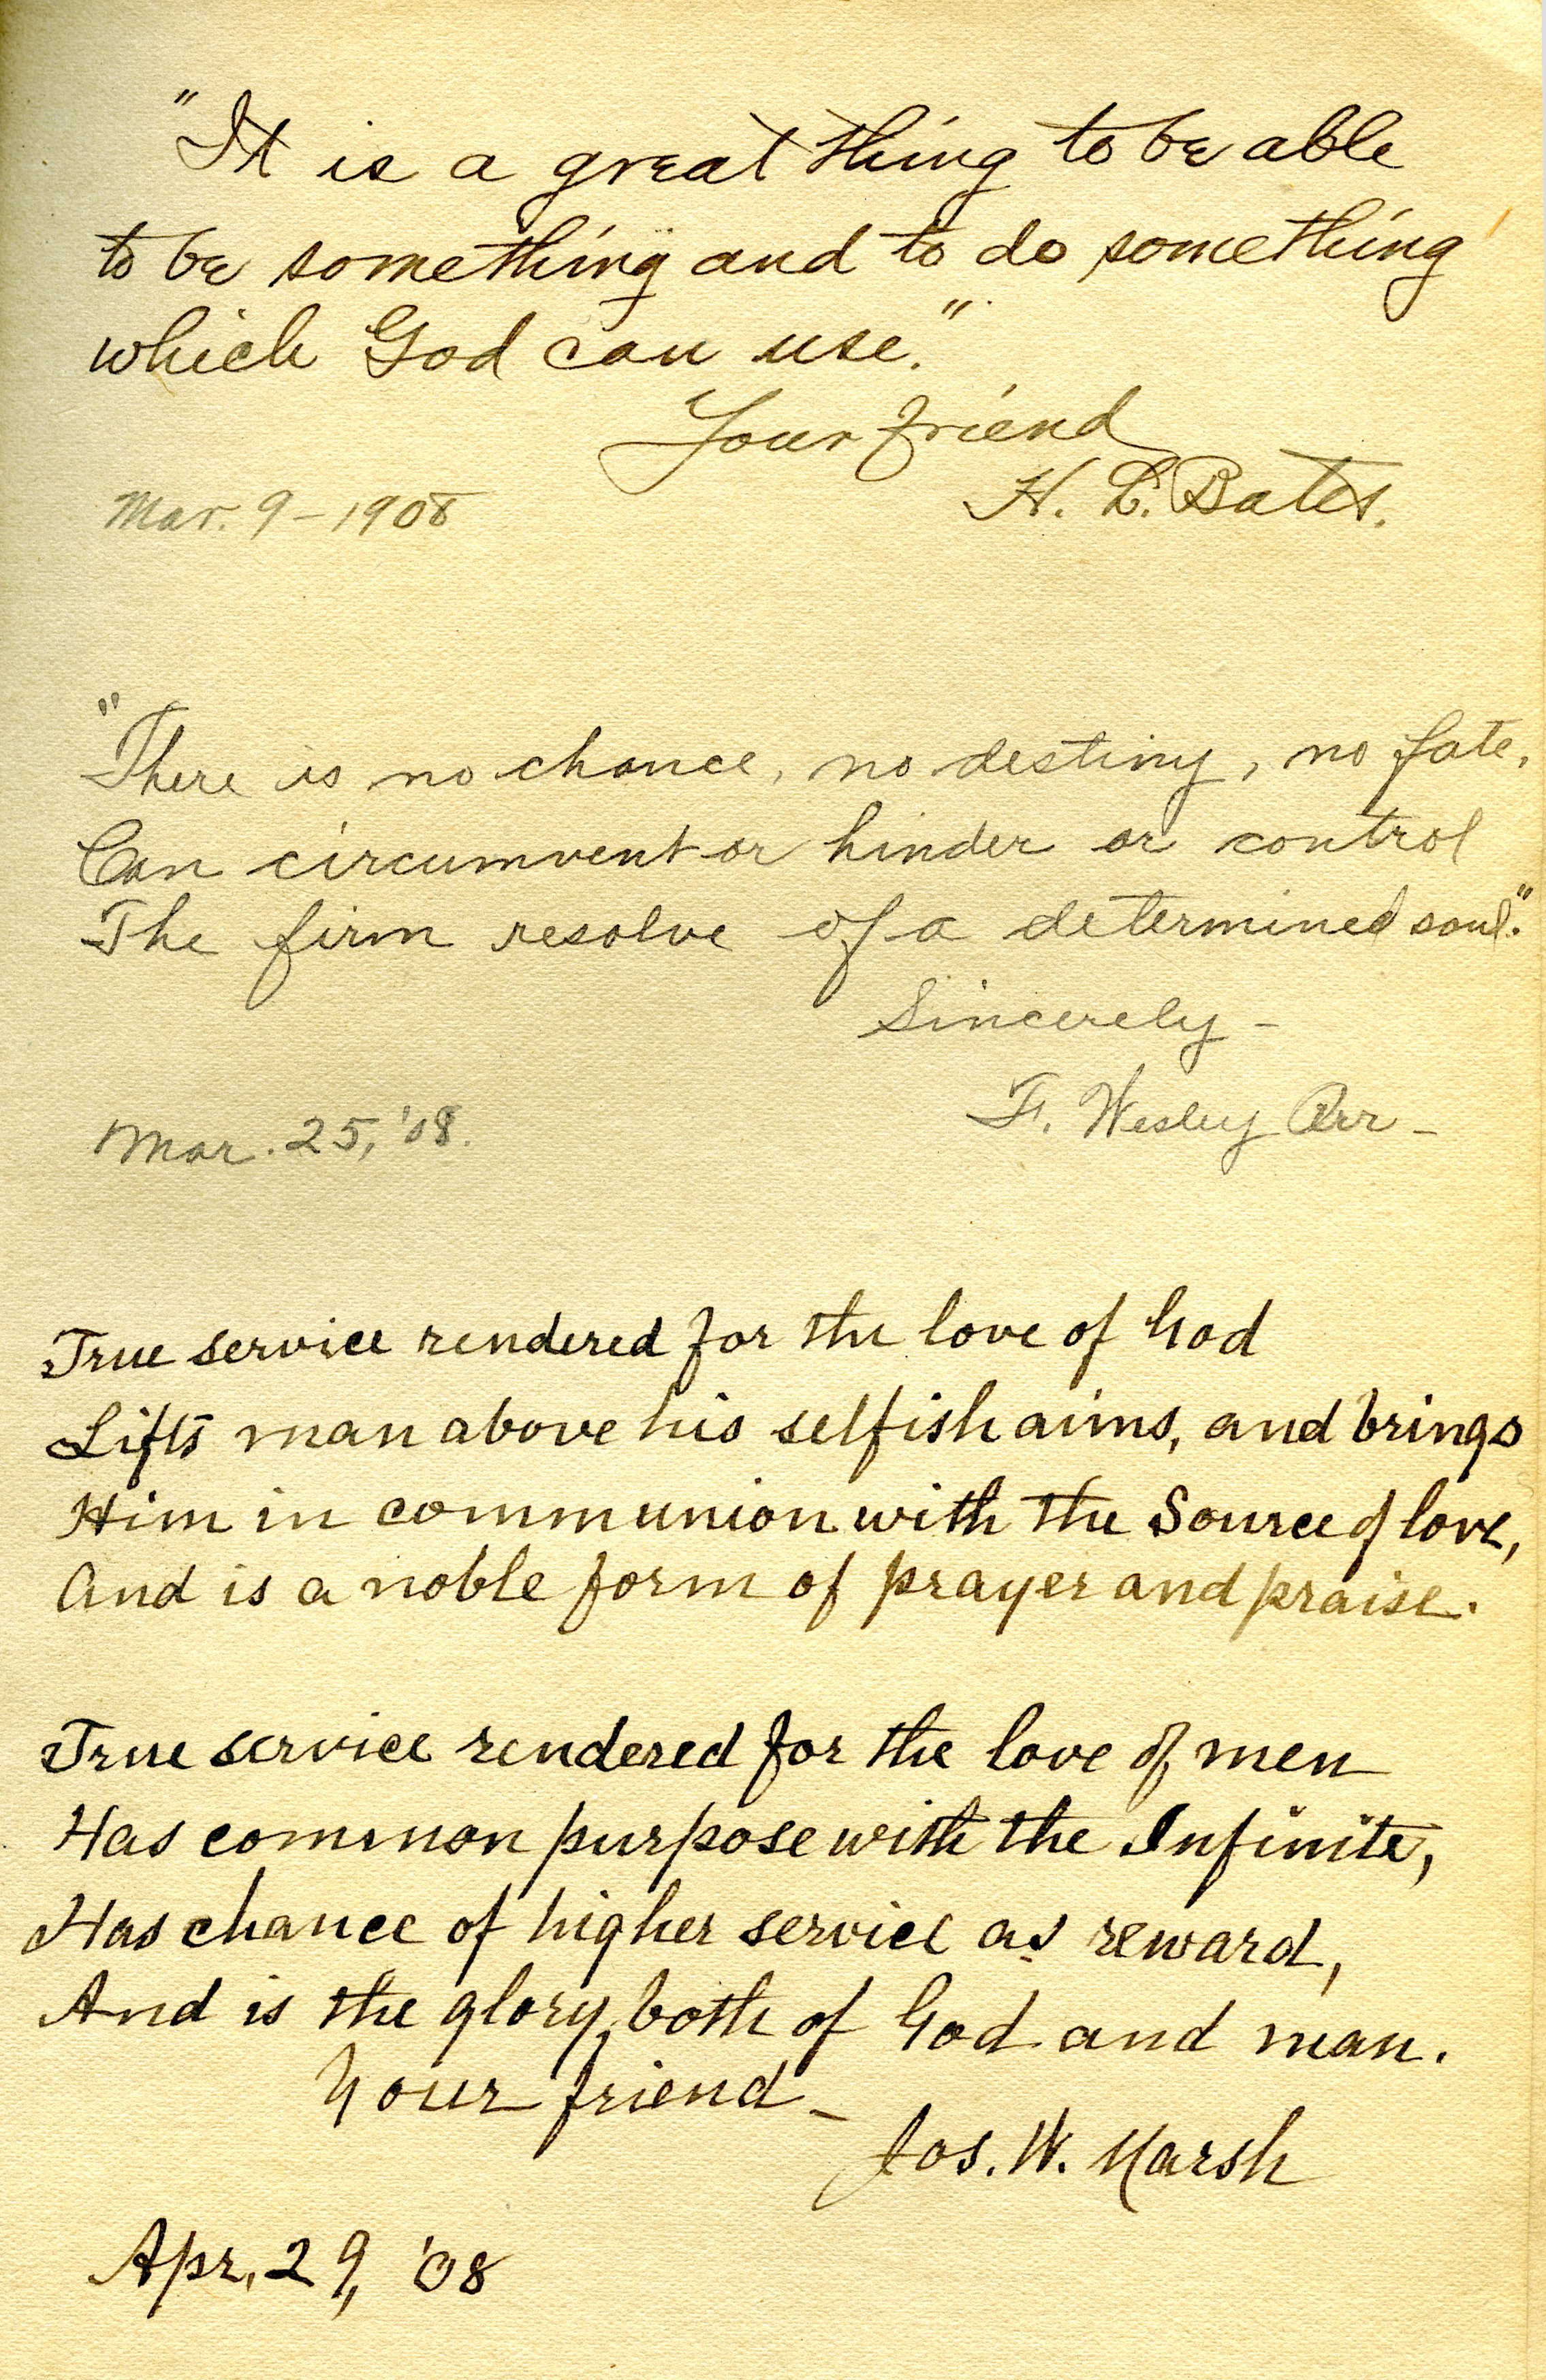 "It is a great thing to be able
to be something and to do something
which God can use."
Your friend
H. L. Bates.
Mar. 9 - 1908
"There is no chance, no destiny, no fate,
Can circumvent or hinder or control
The firm resolve of a determined soul."
Sincerely -
F. Wesley Orr -
Mar. 25, '08.
True service rendered for the love of God
Lifts man above his selfish aims, and brings
Him in communion with the Source of love,
And is a noble form of prayer and praise.
True service rendered for the love of men
Has common purpose with the Infinite,
Has chance of higher service as reward,
And is the glory, both of God and man.
Your friend -
Jos. W. Marsh
Apr. 29, '08